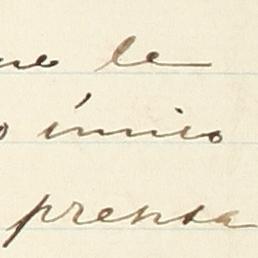 le
único
prensa